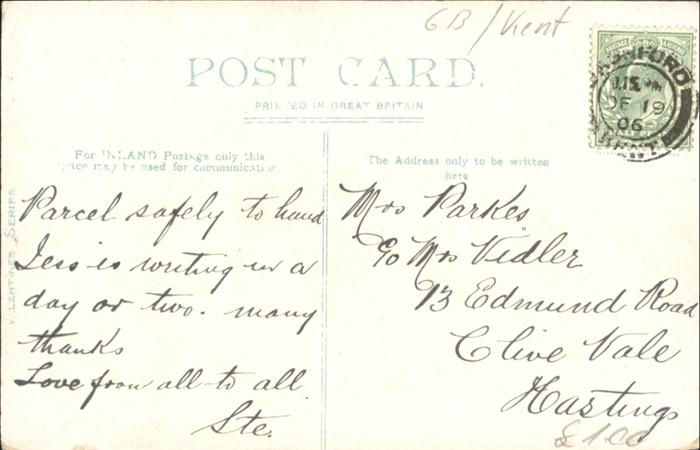 GB/Kent
POST CARD.
PRINTED IN GREAT BRITAIN
For INLAND Postage only this
space may be used for communication.
The Address only to be written
here
VALENTINES SERIES
Parcel safely to hand
Jess is writing in a
day or two. many
thanks
Love from all to all
Ste.
Mrs Parkes
c/o Mrs Vidler
13 Edmund Road
Clive Vale
Hastings
£1.00
ASHFORD
DE 19
06
KENT